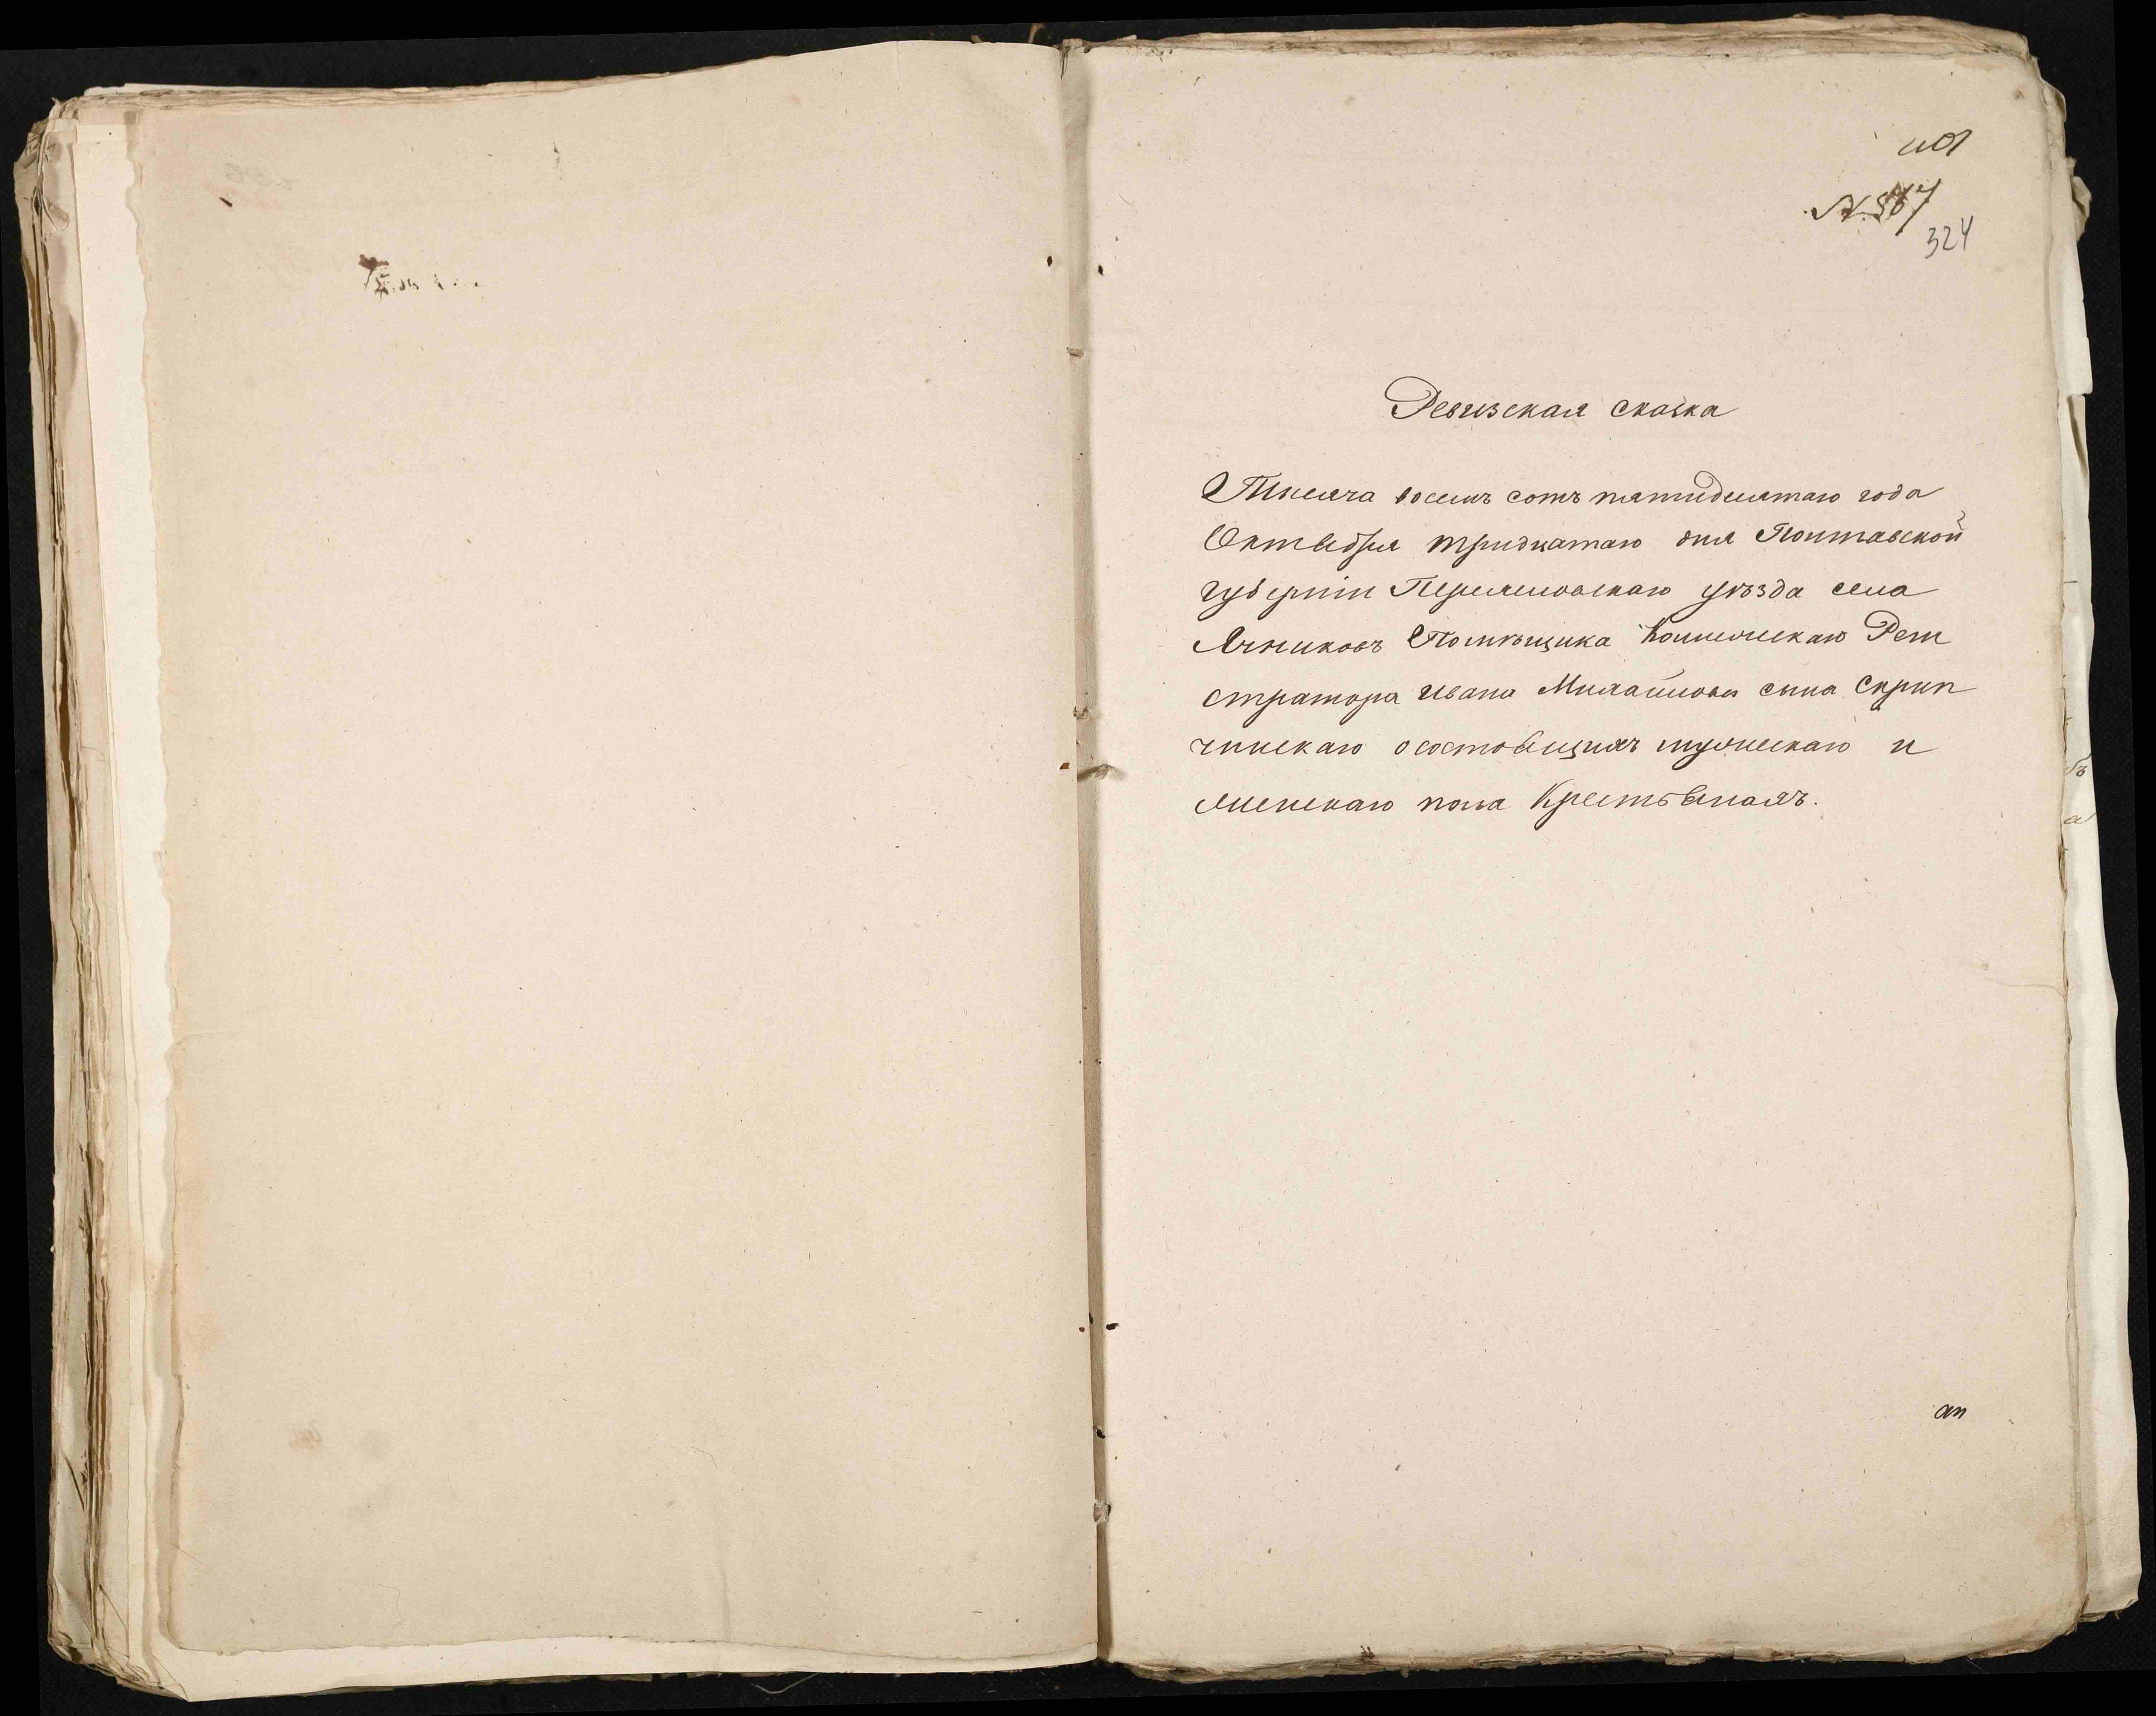 324
Ревизская сказка
Тысяча восемь сотъ пятидесятаго года
Октября тридцатаго дня Полтавской
губерніи Переяславскаго уѣзда села
Ячниковъ Помѣщика Коллежскаго Реги
стратора Ивана Михайлова сына Скрип
чинскаго о состоящихъ мужескаго и
женскаго пола Крестьянахъ.